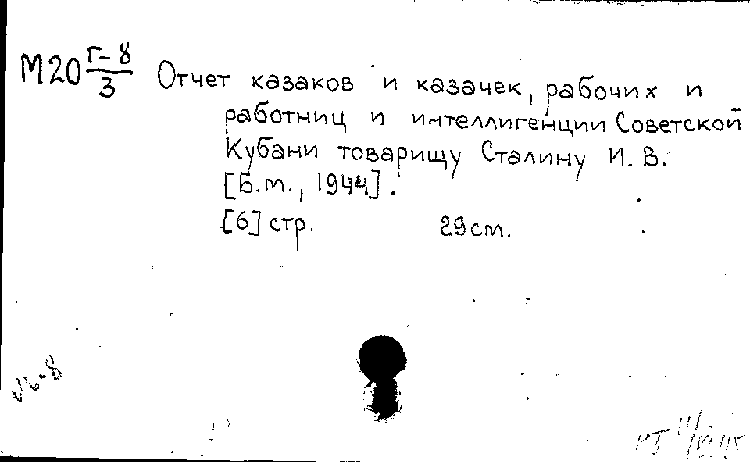 М20 г-8/3 Отчет казаков и казачек, рабочих и
работниц и интеллигенции Советской
Кубани товарищу Сталину И. В.
[Б.м., 1944].
[6] стр. 29см.